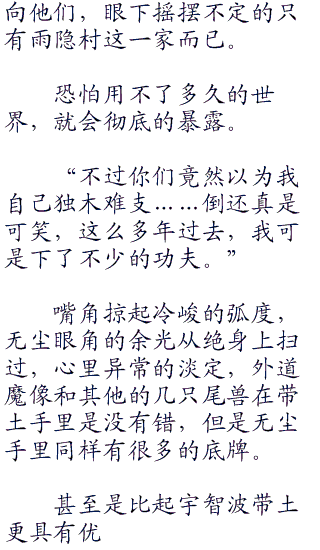 向他们，眼下摇摆不定的只
有雨隐村这一家而已。
恐怕用不了多久的世
界，就会彻底的暴露。
“不过你们竟然以为我
自己独木难支……倒还真是
可笑，这么多年过去，我可
是下了不少的功夫。”
嘴角掠起冷峻的弧度，
无尘眼角的余光从绝身上扫
过，心里异常的淡定，外道
魔像和其他的几只尾兽在带
土手里是没有错，但是无尘
手里同样有很多的底牌。
甚至是比起宇智波带土
更具有优